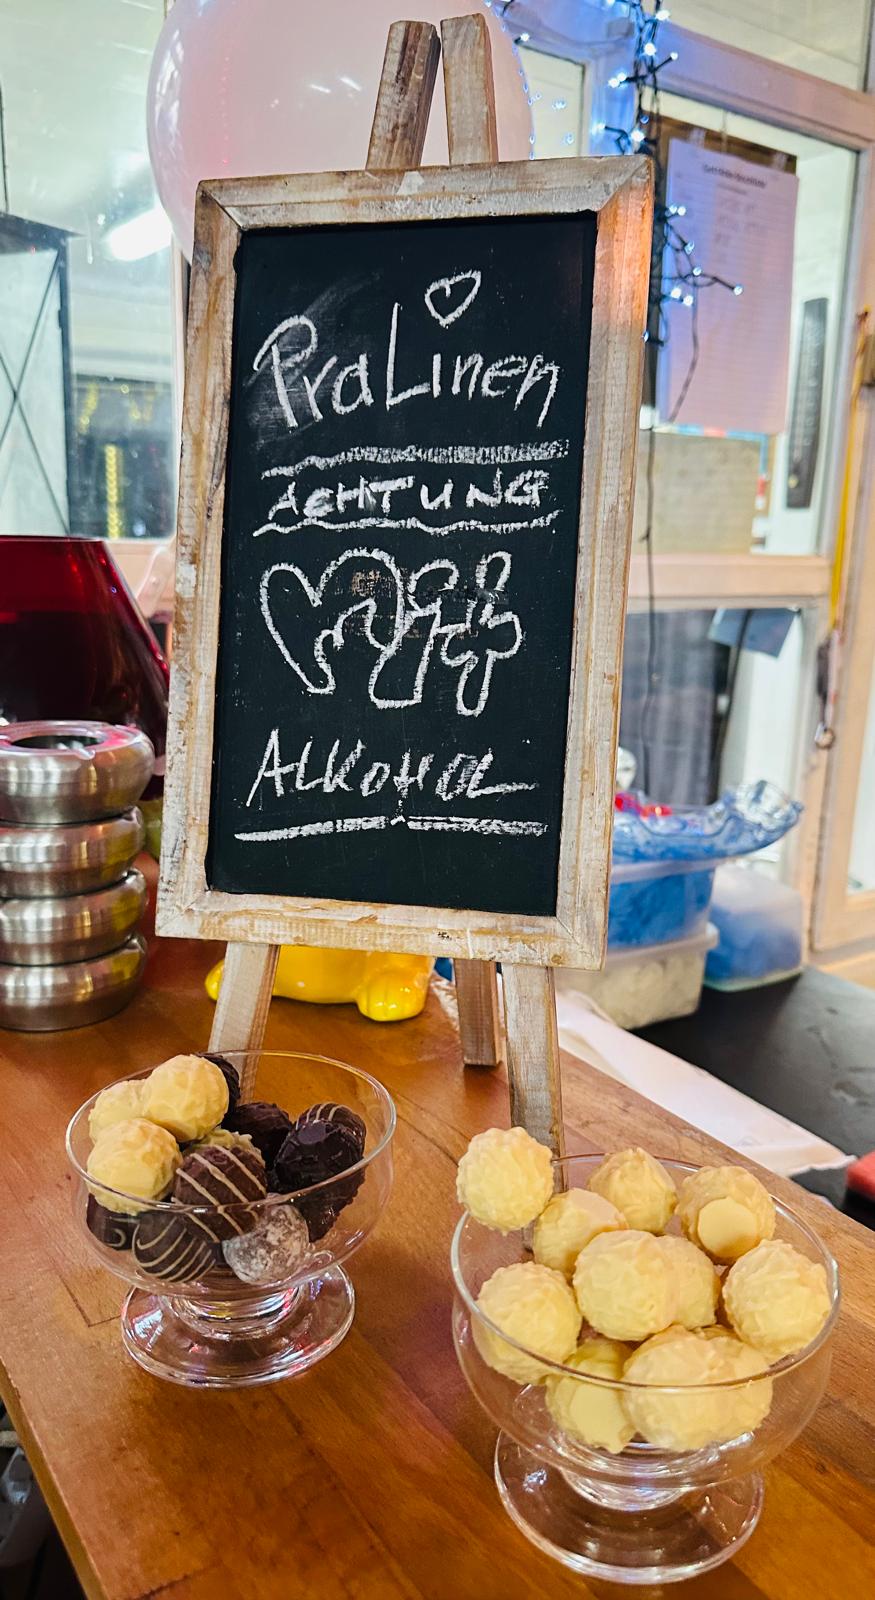 PraLinen
ACHTUNG
Mit
ALKOHOL